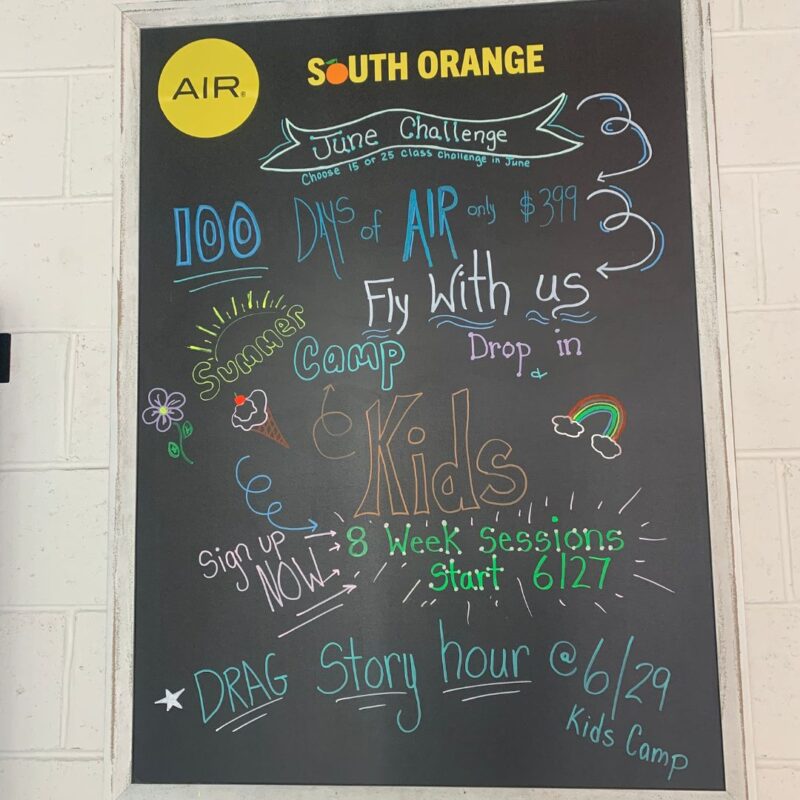 AIR®
SOUTH ORANGE
June Challenge
Choose 15 or 25 class challenge in June
100 DAYS of AIR only $399
Fly With us
Summer Camp
Drop in
&
Kids
Sign up NOW
8 Week Sessions
Start 6/27
DRAG Story hour @ 6/29
Kids Camp